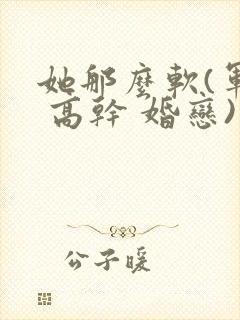 她那麼軟(軍
高幹 婚戀)
公子暖